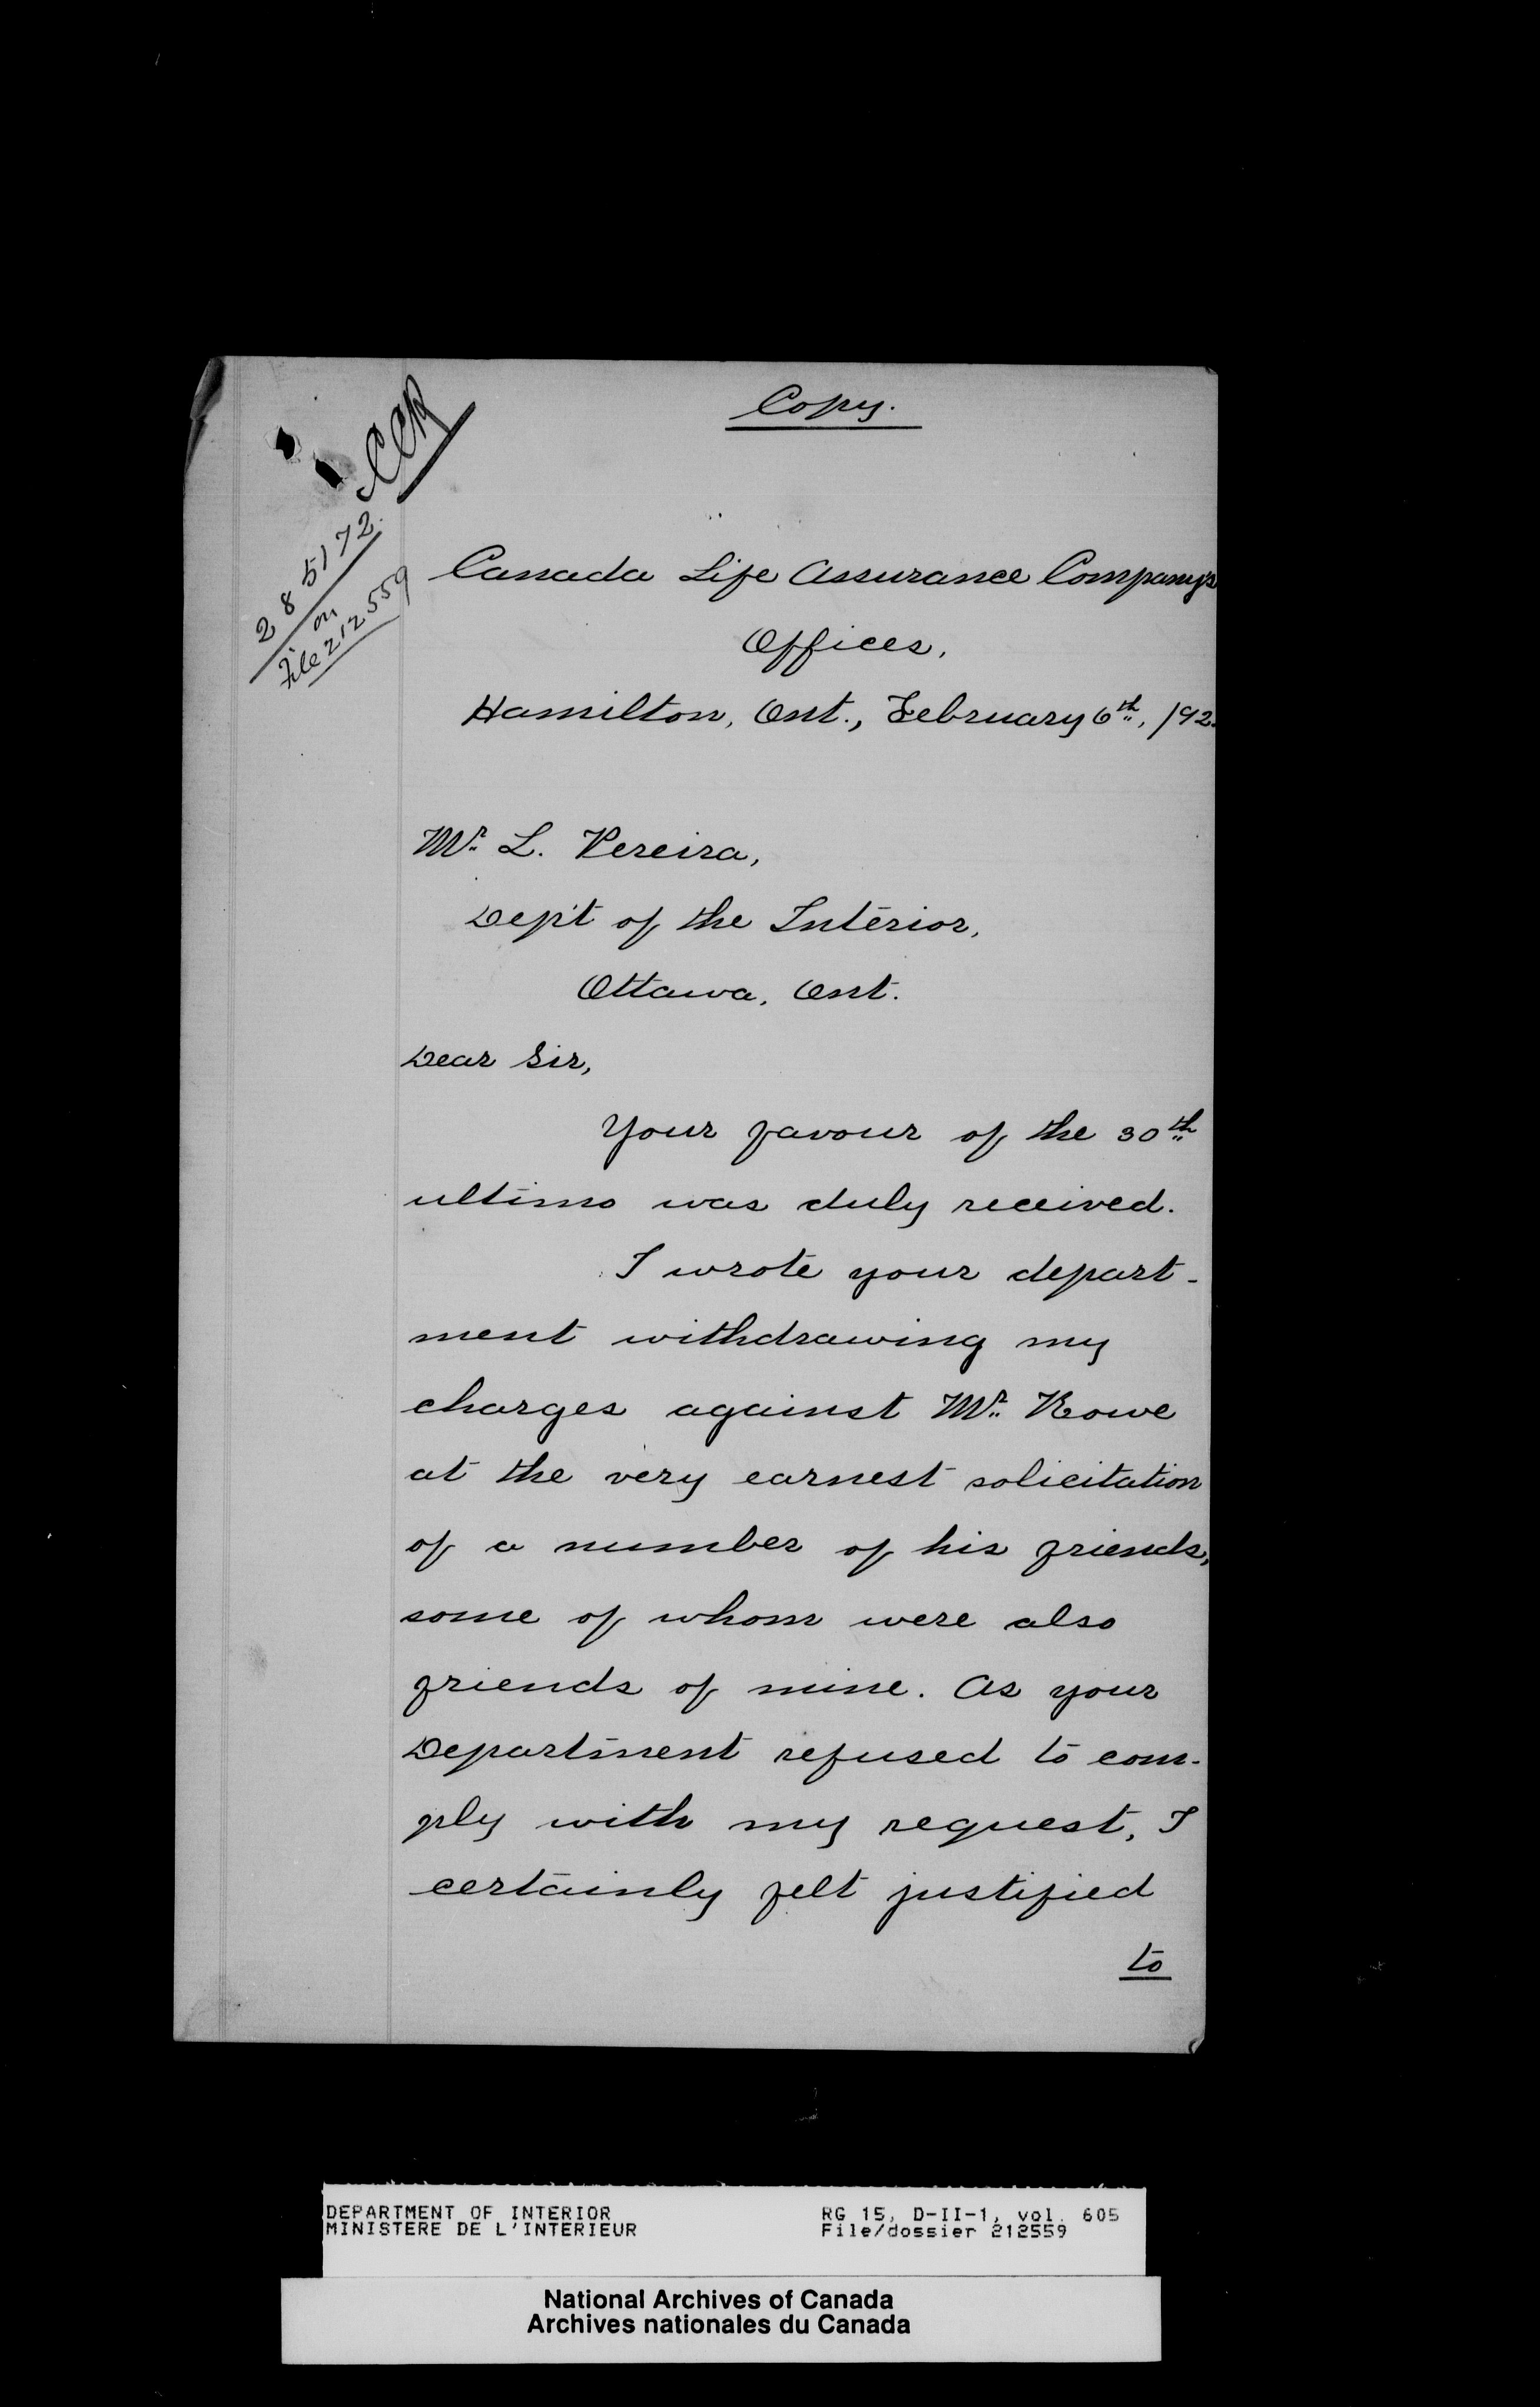 Copy.
CCR
285172.
on
File 212559
Canada Life Assurance Company's
Offices,
Hamilton, Ont., February 6th, 192
Mr. L. Pereira,
Dep't of the Interior,
Ottawa, Ont.
Dear Sir,
Your favour of the 30th
ultimo was duly received.
I wrote your depart-
ment withdrawing my
charges against Mr. Rowe
at the very earnest solicitation
of a number of his friends,
some of whom were also
friends of mine. As your
Department refused to com-
ply with my request, I
certainly felt justified
to
DEPARTMENT OF INTERIOR
MINISTERE DE L'INTERIEUR
RG 15, D-II-1, vol. 605
File/dossier 212559
National Archives of Canada
Archives nationales du Canada